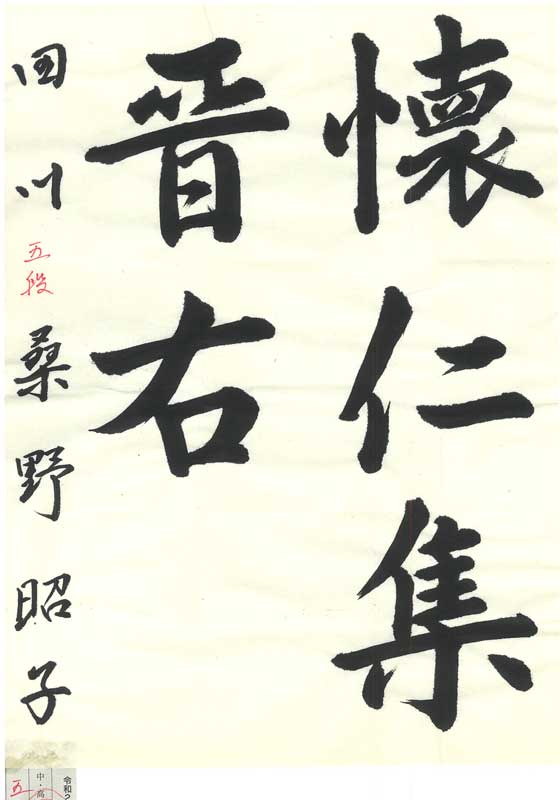 懐仁集
晋右
田川 五段 桑野昭子
令和2
中・高
五